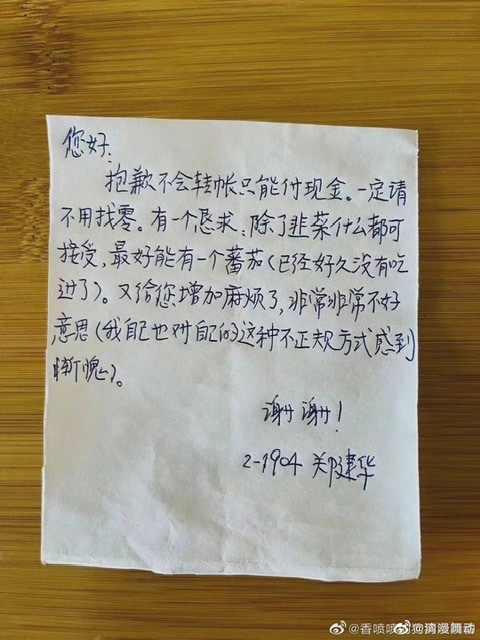 您好:
抱歉不会转帐只能付现金。一定请
不用找零。有一个恳求:除了韭菜什么都可
接受,最好能有一个蕃茄(已经好久没有吃
过了)。又给您增加麻烦了,非常非常不好
意思(我自己也对自己的这种不正规方式感到
惭愧)。
谢谢!
2-1904 郑建华
@香喷喷